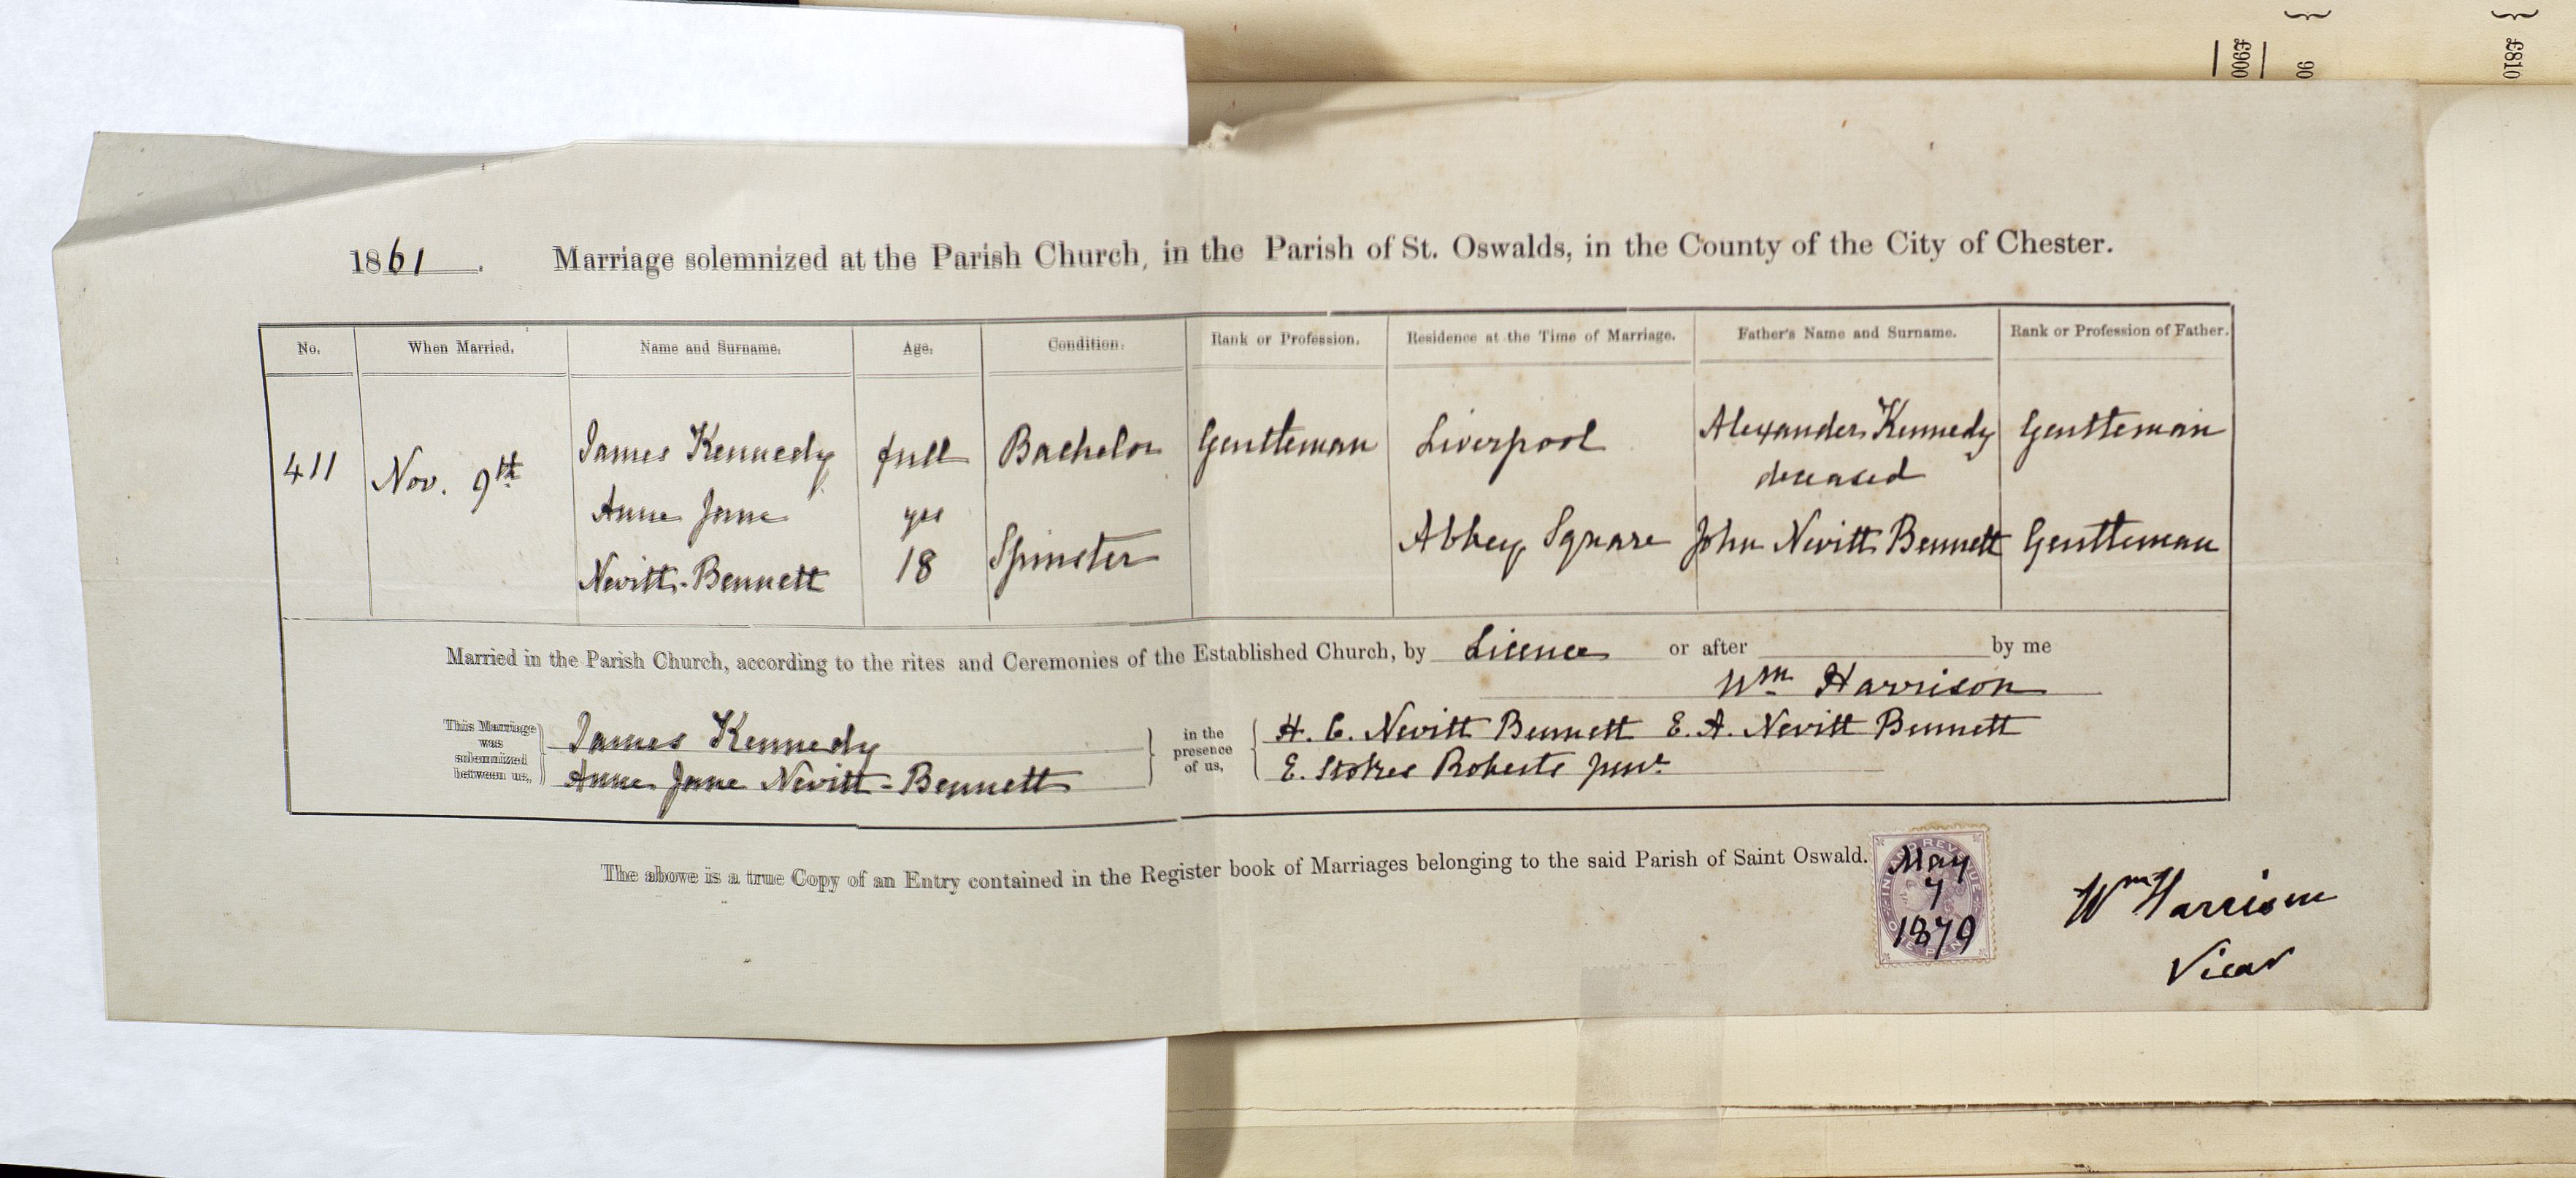 }
}
£900
90
£810
1861. Marriage solemnized at the Parish Church, in the Parish of St. Oswalds, in the County of the City of Chester.
No. When Married. Name and Surname. Age. Condition. Rank or Profession. Residence at the Time of Marriage. Father's Name and Surname. Rank or Profession of Father.
411 Nov. 9th James Kennedy full Bachelor Gentleman Liverpool Alexander Kennedy Gentleman
deceased
Anne Jane yrs
Nevitt-Bennett 18 Spinster Abbey Square John Nevitt Bennett Gentleman
Married in the Parish Church, according to the rites and Ceremonies of the Established Church, by Licence or after by me
Wm Harrison
This Marriage
was
solemnized
between us,
James Kennedy
Anne Jane Nevitt-Bennett
in the
presence
of us,
H. C. Nevitt Bennett E. A. Nevitt Bennett
E. Stokes Roberts junr.
The above is a true Copy of an Entry contained in the Register book of Marriages belonging to the said Parish of Saint Oswald.
INLAND REVENUE
ONE PENNY
May
7
1879
Wm Harrison
Vicar